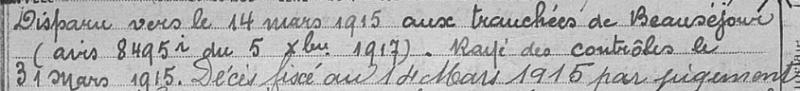 Disparu vers le 14 mars 1915 aux tranchées de Beauséjour
(avis 8495i du 5 Xbre 1917). Rayé des contrôles le
31 mars 1915. Décès fixé au 14 Mars 1915 par jugement